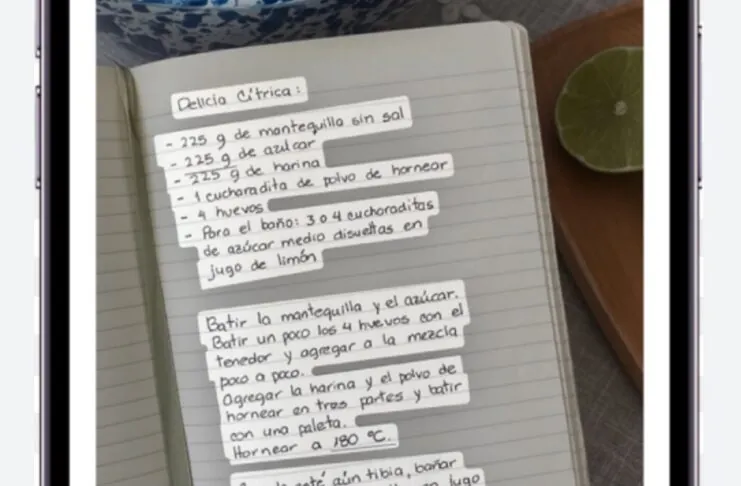 Delicia Cítrica:
- 225 g de mantequilla sin sal
- 225 g de azúcar
- 225 g de harina
- 1 cucharadita de polvo de hornear
- 4 huevos
- Para el baño: 3 o 4 cucharaditas
de azúcar medio disueltas en
jugo de limón
Batir la mantequilla y el azúcar.
Batir un poco los 4 huevos con el
tenedor y agregar a la mezcla
poco a poco.
Agregar la harina y el polvo de
hornear en tres partes y batir
con una paleta.
Hornear a 180 °C.
esté aún tibia, bañar
jugo